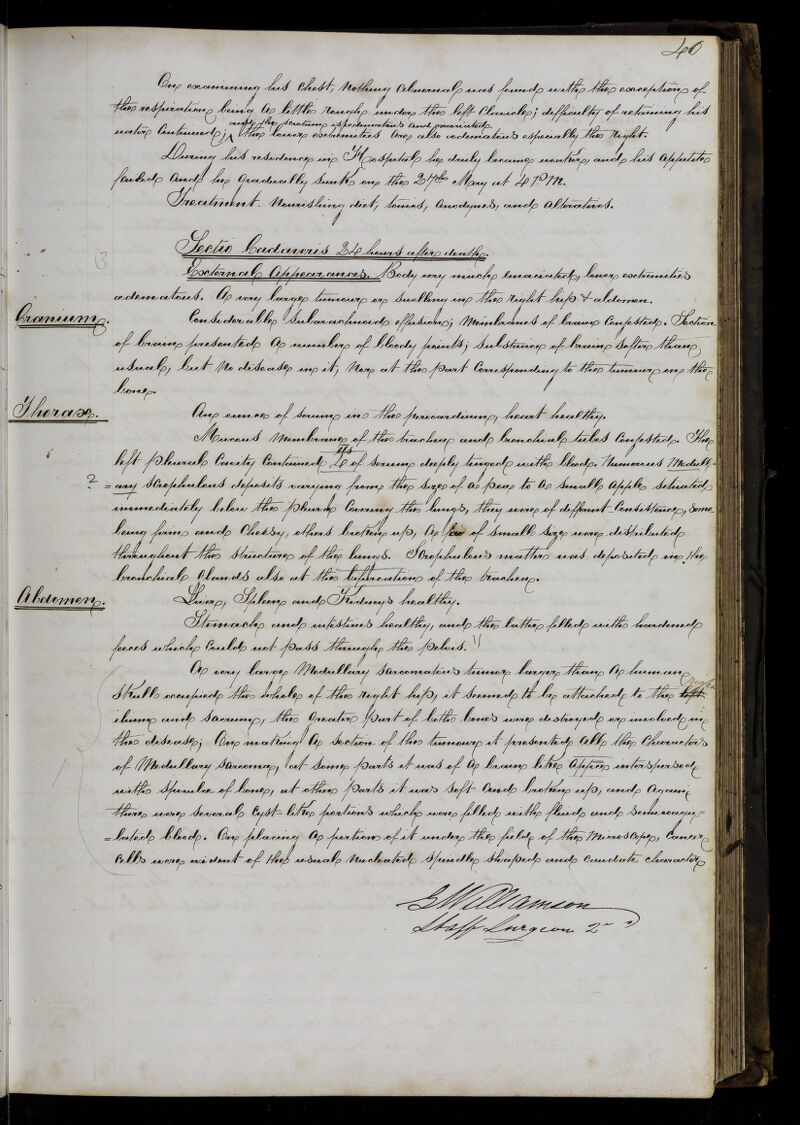 40
On examining his Chest, Nothing Abnormal was found with the exception of
the respiration being a little rough under the left Clavicle; difficulty of retaining his
and the scrotum is œdematous and excoriated
water Continued; ^ the lower extremities are also œdematous especially the right.
During his residence in Hospital he daily became weaker, and his Appetite
failed And he gradually sunk on the 27th May at 4 P.M.
Treatment. Nourishing diet, tonics, Anodynes, and Alteratives.
Sectio Cadaveris 24 hours after death.
3
External Appearances. Body very much emaciated, lower extremities
œdematous. A very large tumour or swelling in the right hip & abdomen.
Cranium. Considerable Subarachnoid effusion; Membranes of brain Congested. Section
of brain presented a number of bloody points; substance of brain softer than
usual, but no disease in it, nor at the part Corresponding to the tumour on the
bone.
Thorax. An ounce of serum in the pericardium, heart healthy.
Mucous Membrane of the trachea and bronchial tubes Congested. The
left Pleural Cavity Contained 4 of serum deeply tinged with blood. Numerous Medull=
? =ary Scrophulous deposits varying from the size of a pea to a small apple situated
immediately below the pleura Covering the lungs, they were of different Consistence, some
being firm and Cheesy, others broken up, A few of small size were distributed
throughout the structure of the lungs. Scrophulous matter was deposited in the
bronchial glands also at the bifurcation of the trachea.
Abdomen. Liver, Spleen and Kidneys healthy.
Stomach and intestines healthy, and the latter filled with hardened
feces which Could not pass through the pelvis.
A very large Medullary sarcomatous tumor larger than a human
right
Skull occupied the whole of the right hip, it seemed to be attached to the left
ilium and sacrum, the greater part of both bones were destroyed or involved in
the disease; On making a section of the tumour it presented all the Characters
of Medullary Sarcoma, at some parts it was of a brain like appce interspersed
with spiculae of bone, at other parts it was soft and broken up, and again
there were several cyst-like portions which were filled with fluid and semicoagu=
=lated blood. On placing a portion of it under the field of the Microscope, Cancer
Cells were evident of the usual Nucleated spindle shaped and caudate character
G Williamson
Staff Surgeon 2nd